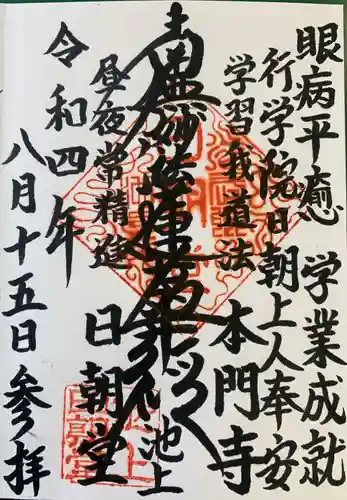 眼病平癒 学業成就
行学院日朝上人奉安
学習我道法 本門寺
南無妙法蓮華経
昼夜常精進
池上
日朝堂
令和四年
八月十五日参拝